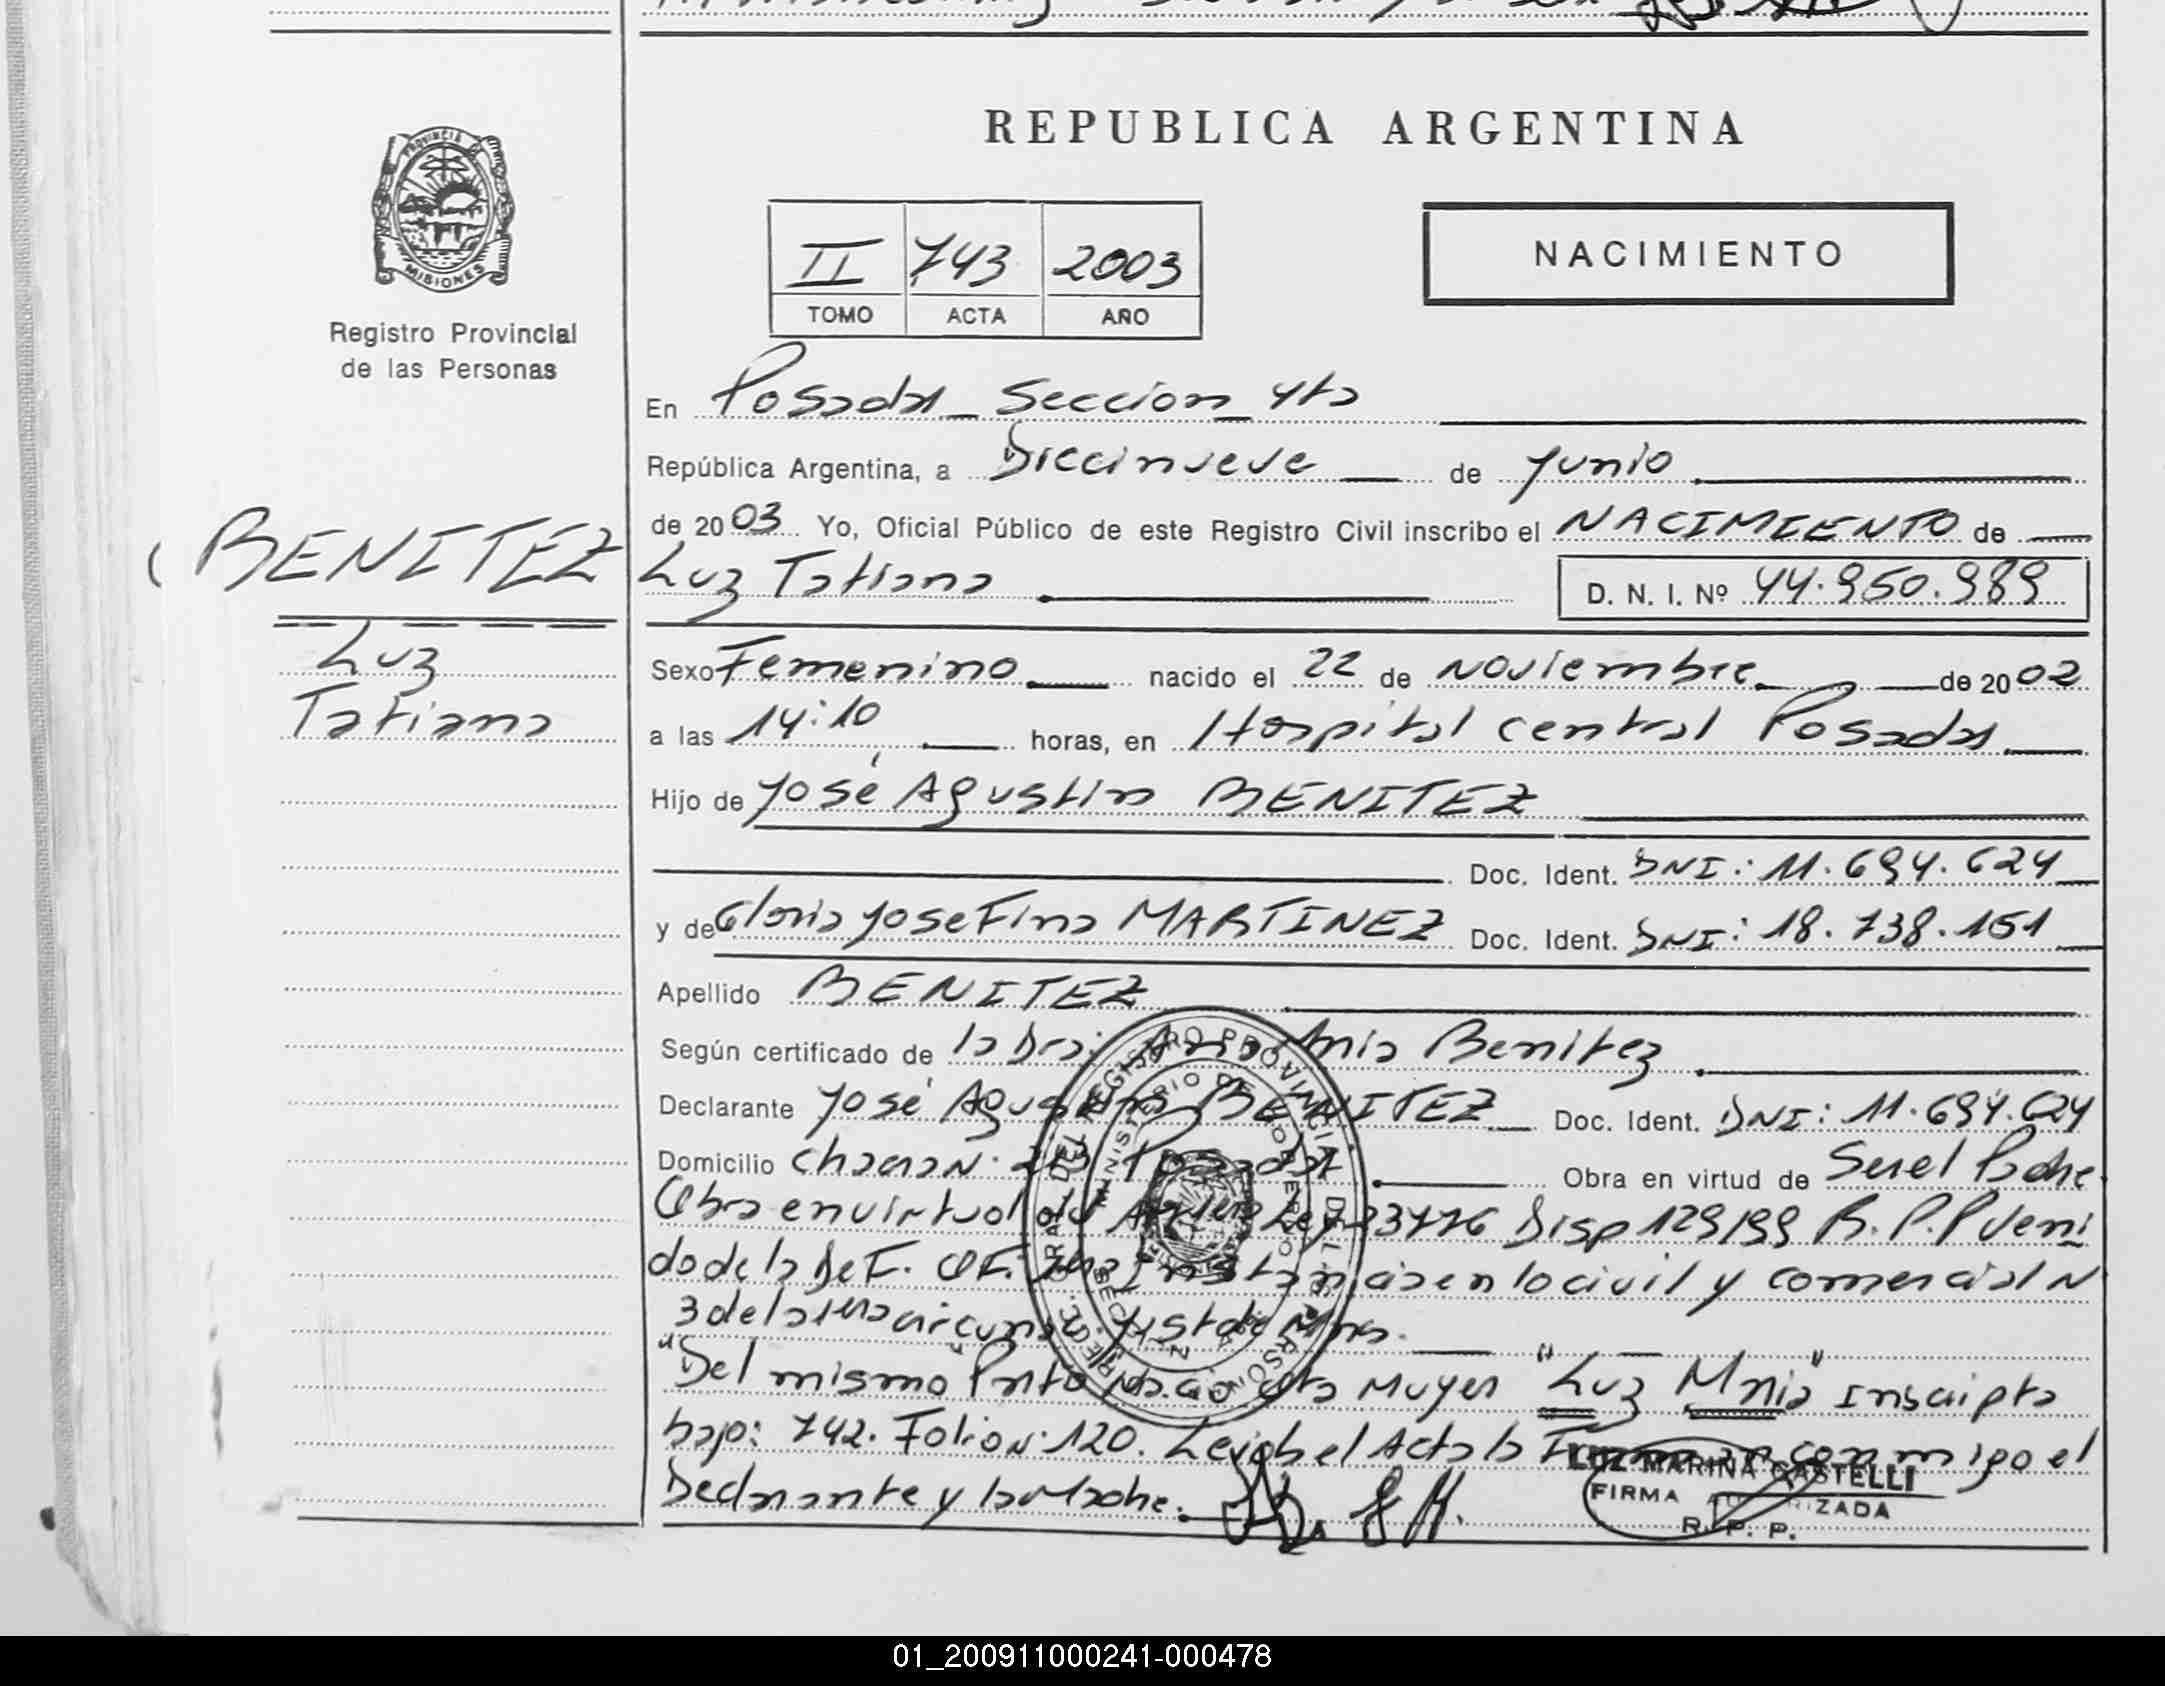 REPUBLICA ARGENTINA
PROVINCIA
MISIONES
Registro Provincial
de las Personas
II 743 2003
TOMO ACTA AÑO
NACIMIENTO
En Posadas Seccion 4ta
República Argentina, a Diecinueve de Junio
de 2003 Yo, Oficial Público de este Registro Civil inscribo el NACIMIENTO de
BENITEZ
Luz
Tatiana
Luz Tatiana D. N. I. Nº 44.950.989
Sexo Femenino nacido el 22 de Noviembre de 2002
a las 14:10 horas, en Hospital central Posadas
Hijo de José Agustin BENITEZ
Doc. Ident. DNI: 11.694.624
y de Gloria Josefina MARTINEZ Doc. Ident. DNI: 18.738.151
Apellido BENITEZ
Según certificado de la Dra: Benitez
Declarante José Agustin BENITEZ Doc. Ident. DNI: 11.694.624
Domicilio Posadas Obra en virtud de Ser el Padre
Obra en virtud Ley 23776 Disp 129/99 R.P.P veni
do de la Def. Of. Instancia en lo civil y comercial N
3 de la 1era circuns. Mnes.
"Del mismo" Parto Nacio Mujer "Luz Maria" Inscripta
bajo: 742. Folio N. 120. Leida el Acta la Firman conmigo el
Declarante y la Madre.
LUZ MARINA CASTELLI
FIRMA AUTORIZADA
R. P. P.
01_200911000241-000478